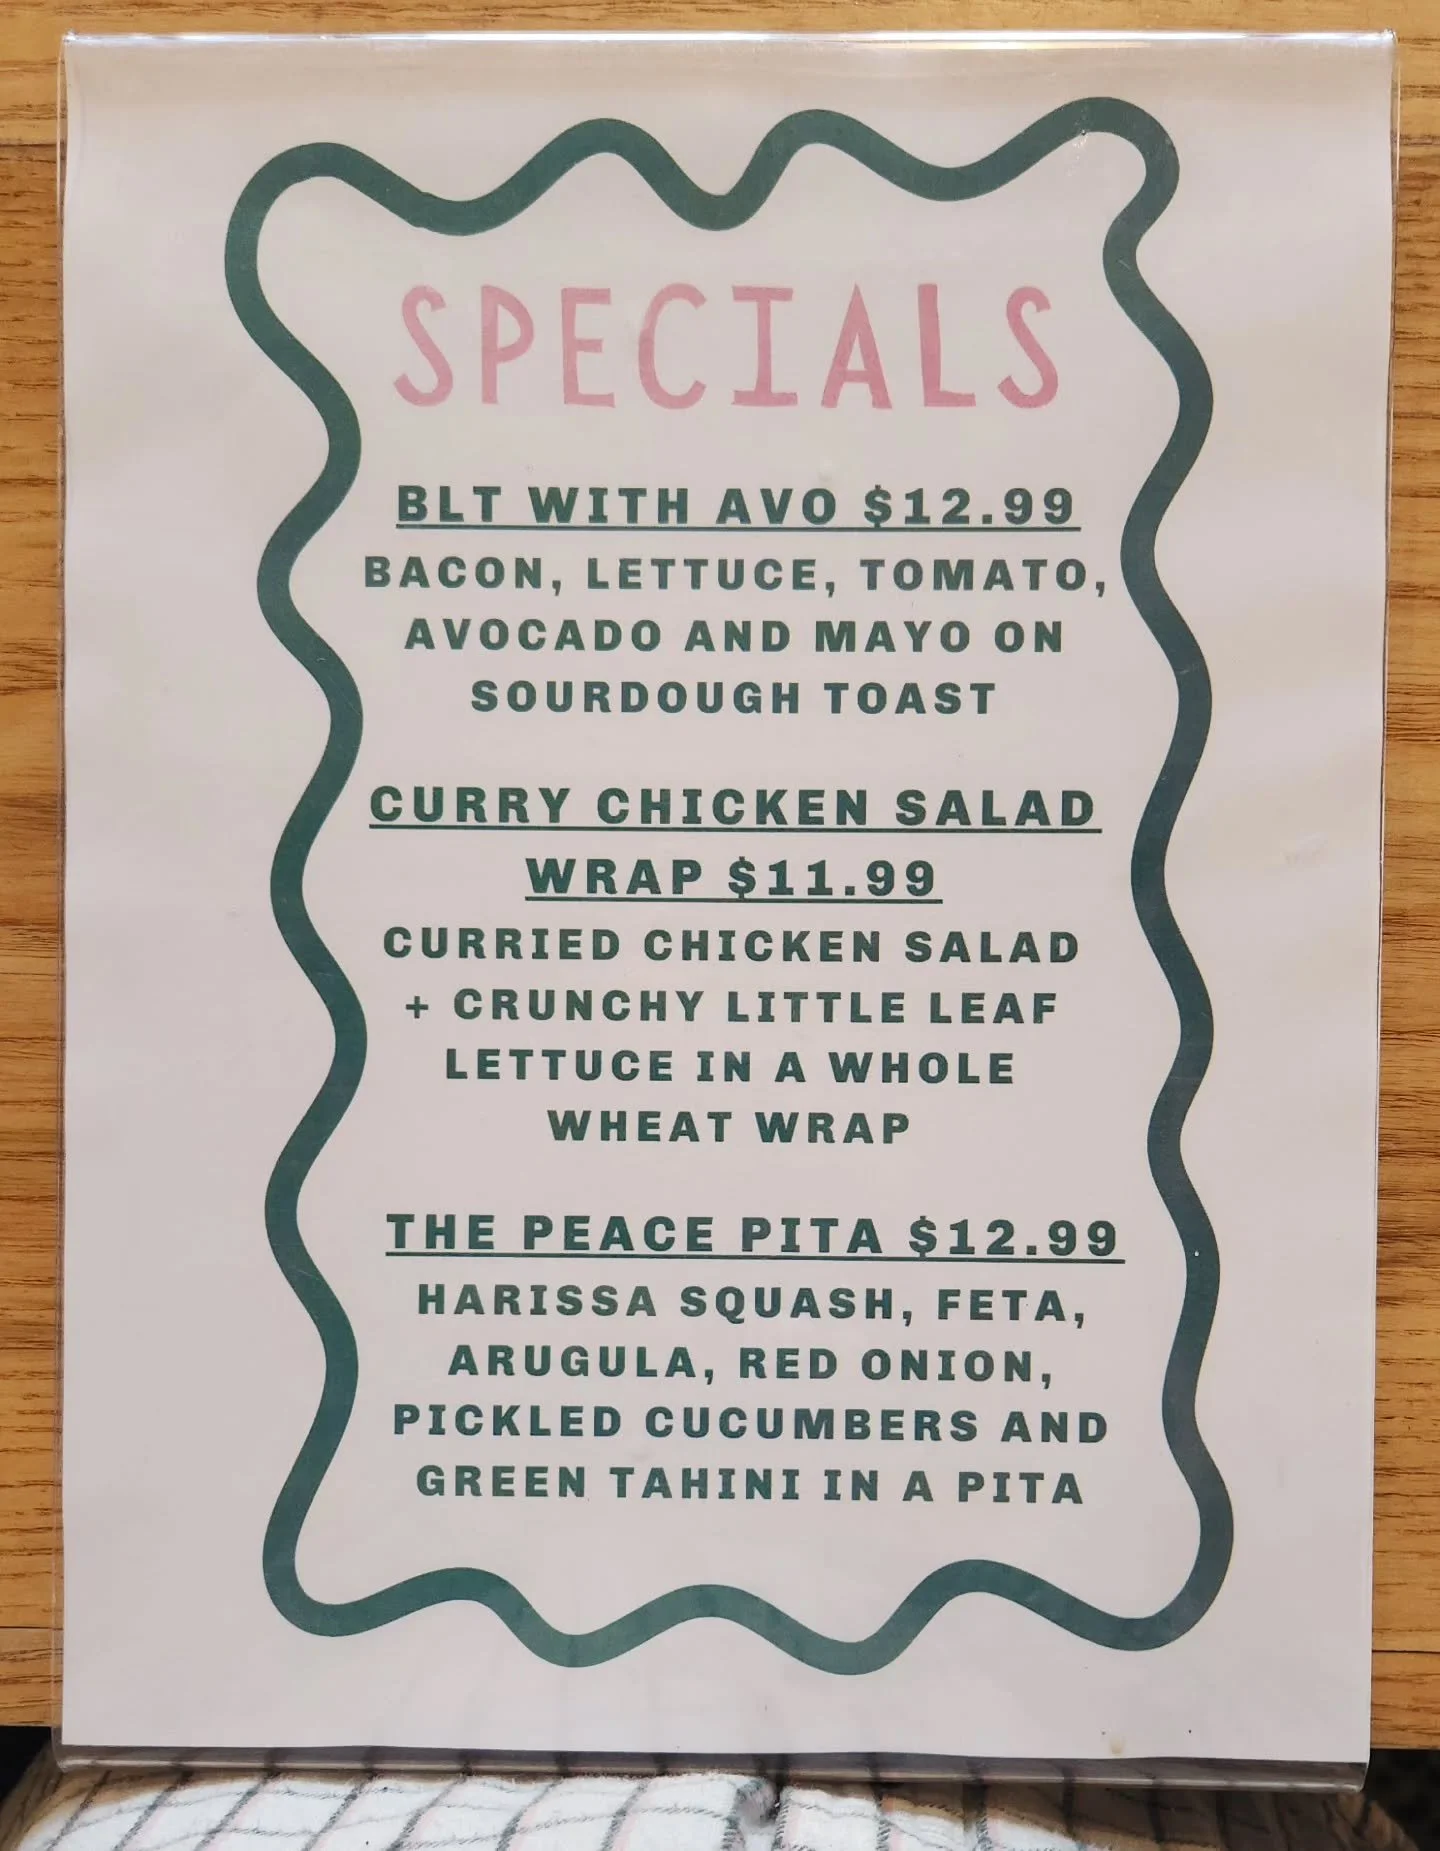 SPECIALS
BLT WITH AVO $12.99
BACON, LETTUCE, TOMATO,
AVOCADO AND MAYO ON
SOURDOUGH TOAST
CURRY CHICKEN SALAD
WRAP $11.99
CURRIED CHICKEN SALAD
+ CRUNCHY LITTLE LEAF
LETTUCE IN A WHOLE
WHEAT WRAP
THE PEACE PITA $12.99
HARISSA SQUASH, FETA,
ARUGULA, RED ONION,
PICKLED CUCUMBERS AND
GREEN TAHINI IN A PITA